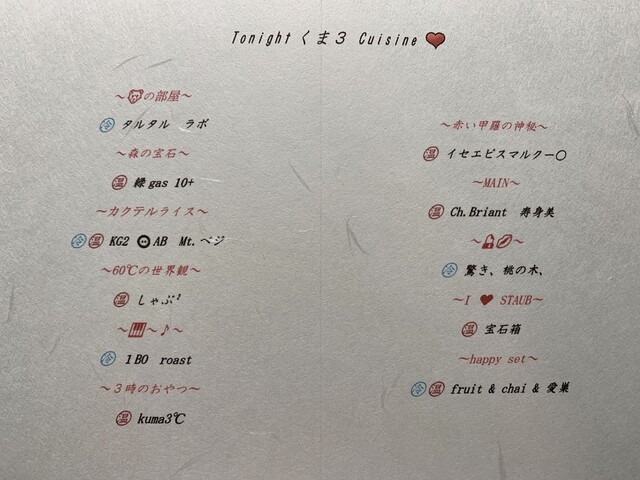 Tonight くま３ Cuisine
～の部屋～
冷 タルタル ラボ
～森の宝石～
温 緑 gas 10+
～カクテルライス～
冷 温 KG2 AB Mt.ベジ
～60℃の世界観～
温 しゃぶ²
～～♪～
冷 1BO roast
～３時のおやつ～
温 kuma3℃
～赤い甲羅の神秘～
温 イセエビスマルクー〇
～MAIN～
温 Ch.Briant 寿身美
～～
冷 驚き、桃の木、
～I ♥ STAUB～
温 宝石箱
～happy set～
冷 温 fruit & chai & 愛巣